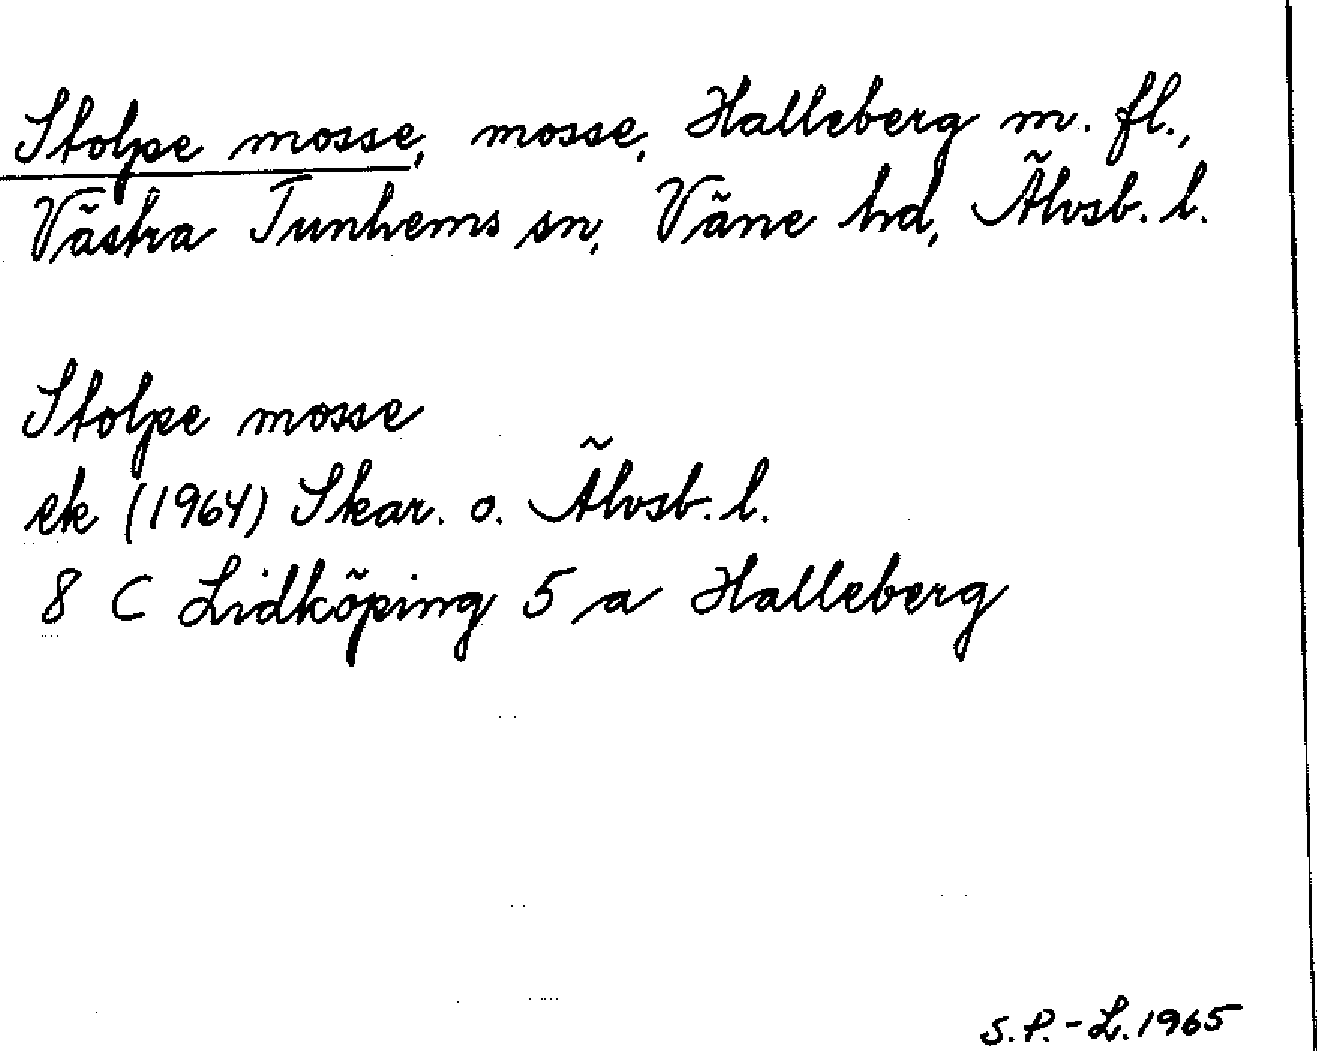 Stolpe mosse, mosse, Halleberg m. fl.,
Västra Tunhems sn, Väne hd, Älvsb. l.
Stolpe mosse
ek (1964) Skar. o. Älvsb. l.
8 C Lidköping 5 a Halleberg
S.P.-L. 1965